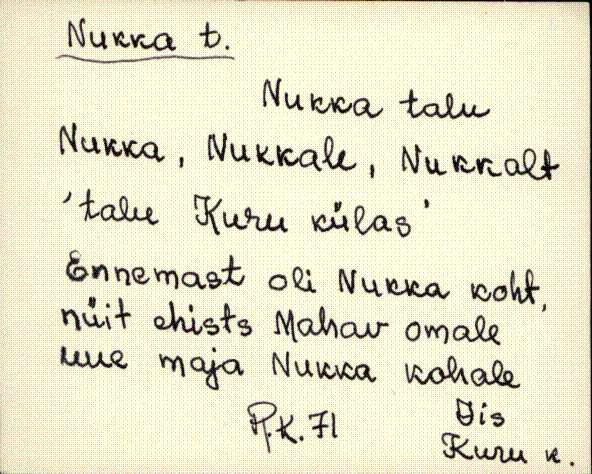 Nukka t.
Nukka talu
Nukka, Nukkale, Nukkalt
'talu Kuru külas'
Ennemast oli Nukka koht,
nüit ehists Mahav omale
uue maja Nukka kohale
P.K. 71 Iis
Kuru k.